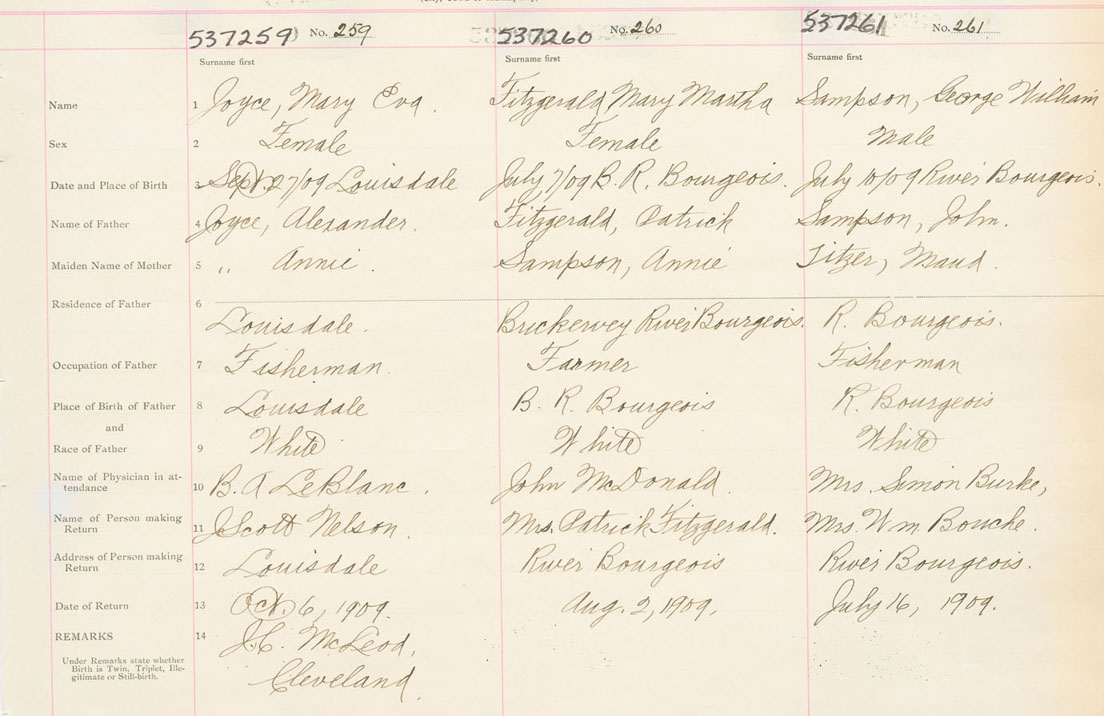 537259 No. 259 537260 No. 260 537261 No. 261
Surname first Surname first Surname first
Name 1 Joyce, Mary Eva. Fitzgerald, Mary Martha Sampson, George William
Sex 2 Female Female Male
Date and Place of Birth 3 Sept. 27/09 Louisdale July 7/09 B. R. Bourgeois. July 10/09 River Bourgeois.
Name of Father 4 Joyce, Alexander. Fitzgerald, Patrick Sampson, John.
Maiden Name of Mother 5 " Annie. Sampson, Annie Fitzer, Maud.
Residence of Father 6
Louisdale. River Bourgeois. R. Bourgeois.
Occupation of Father 7 Fisherman. Farmer Fisherman
Place of Birth of Father 8 Louisdale B. R. Bourgeois R. Bourgeois
and
Race of Father 9 White White White
Name of Physician in at-
tendance 10 B. A LeBlanc. John McDonald. Mrs. Simon Burke,
Name of Person making
Return 11 J Scott Nelson. Mrs. Patrick Fitzgerald. Mrs. Wm Bouche.
Address of Person making
Return 12 Louisdale River Bourgeois River Bourgeois.
Date of Return 13 Oct. 6, 1909. Aug. 2, 1909. July 16, 1909.
REMARKS 14 McLeod,
Under Remarks state whether
Birth is Twin, Triplet, Ille-
gitimate or Still-birth.
Cleveland.